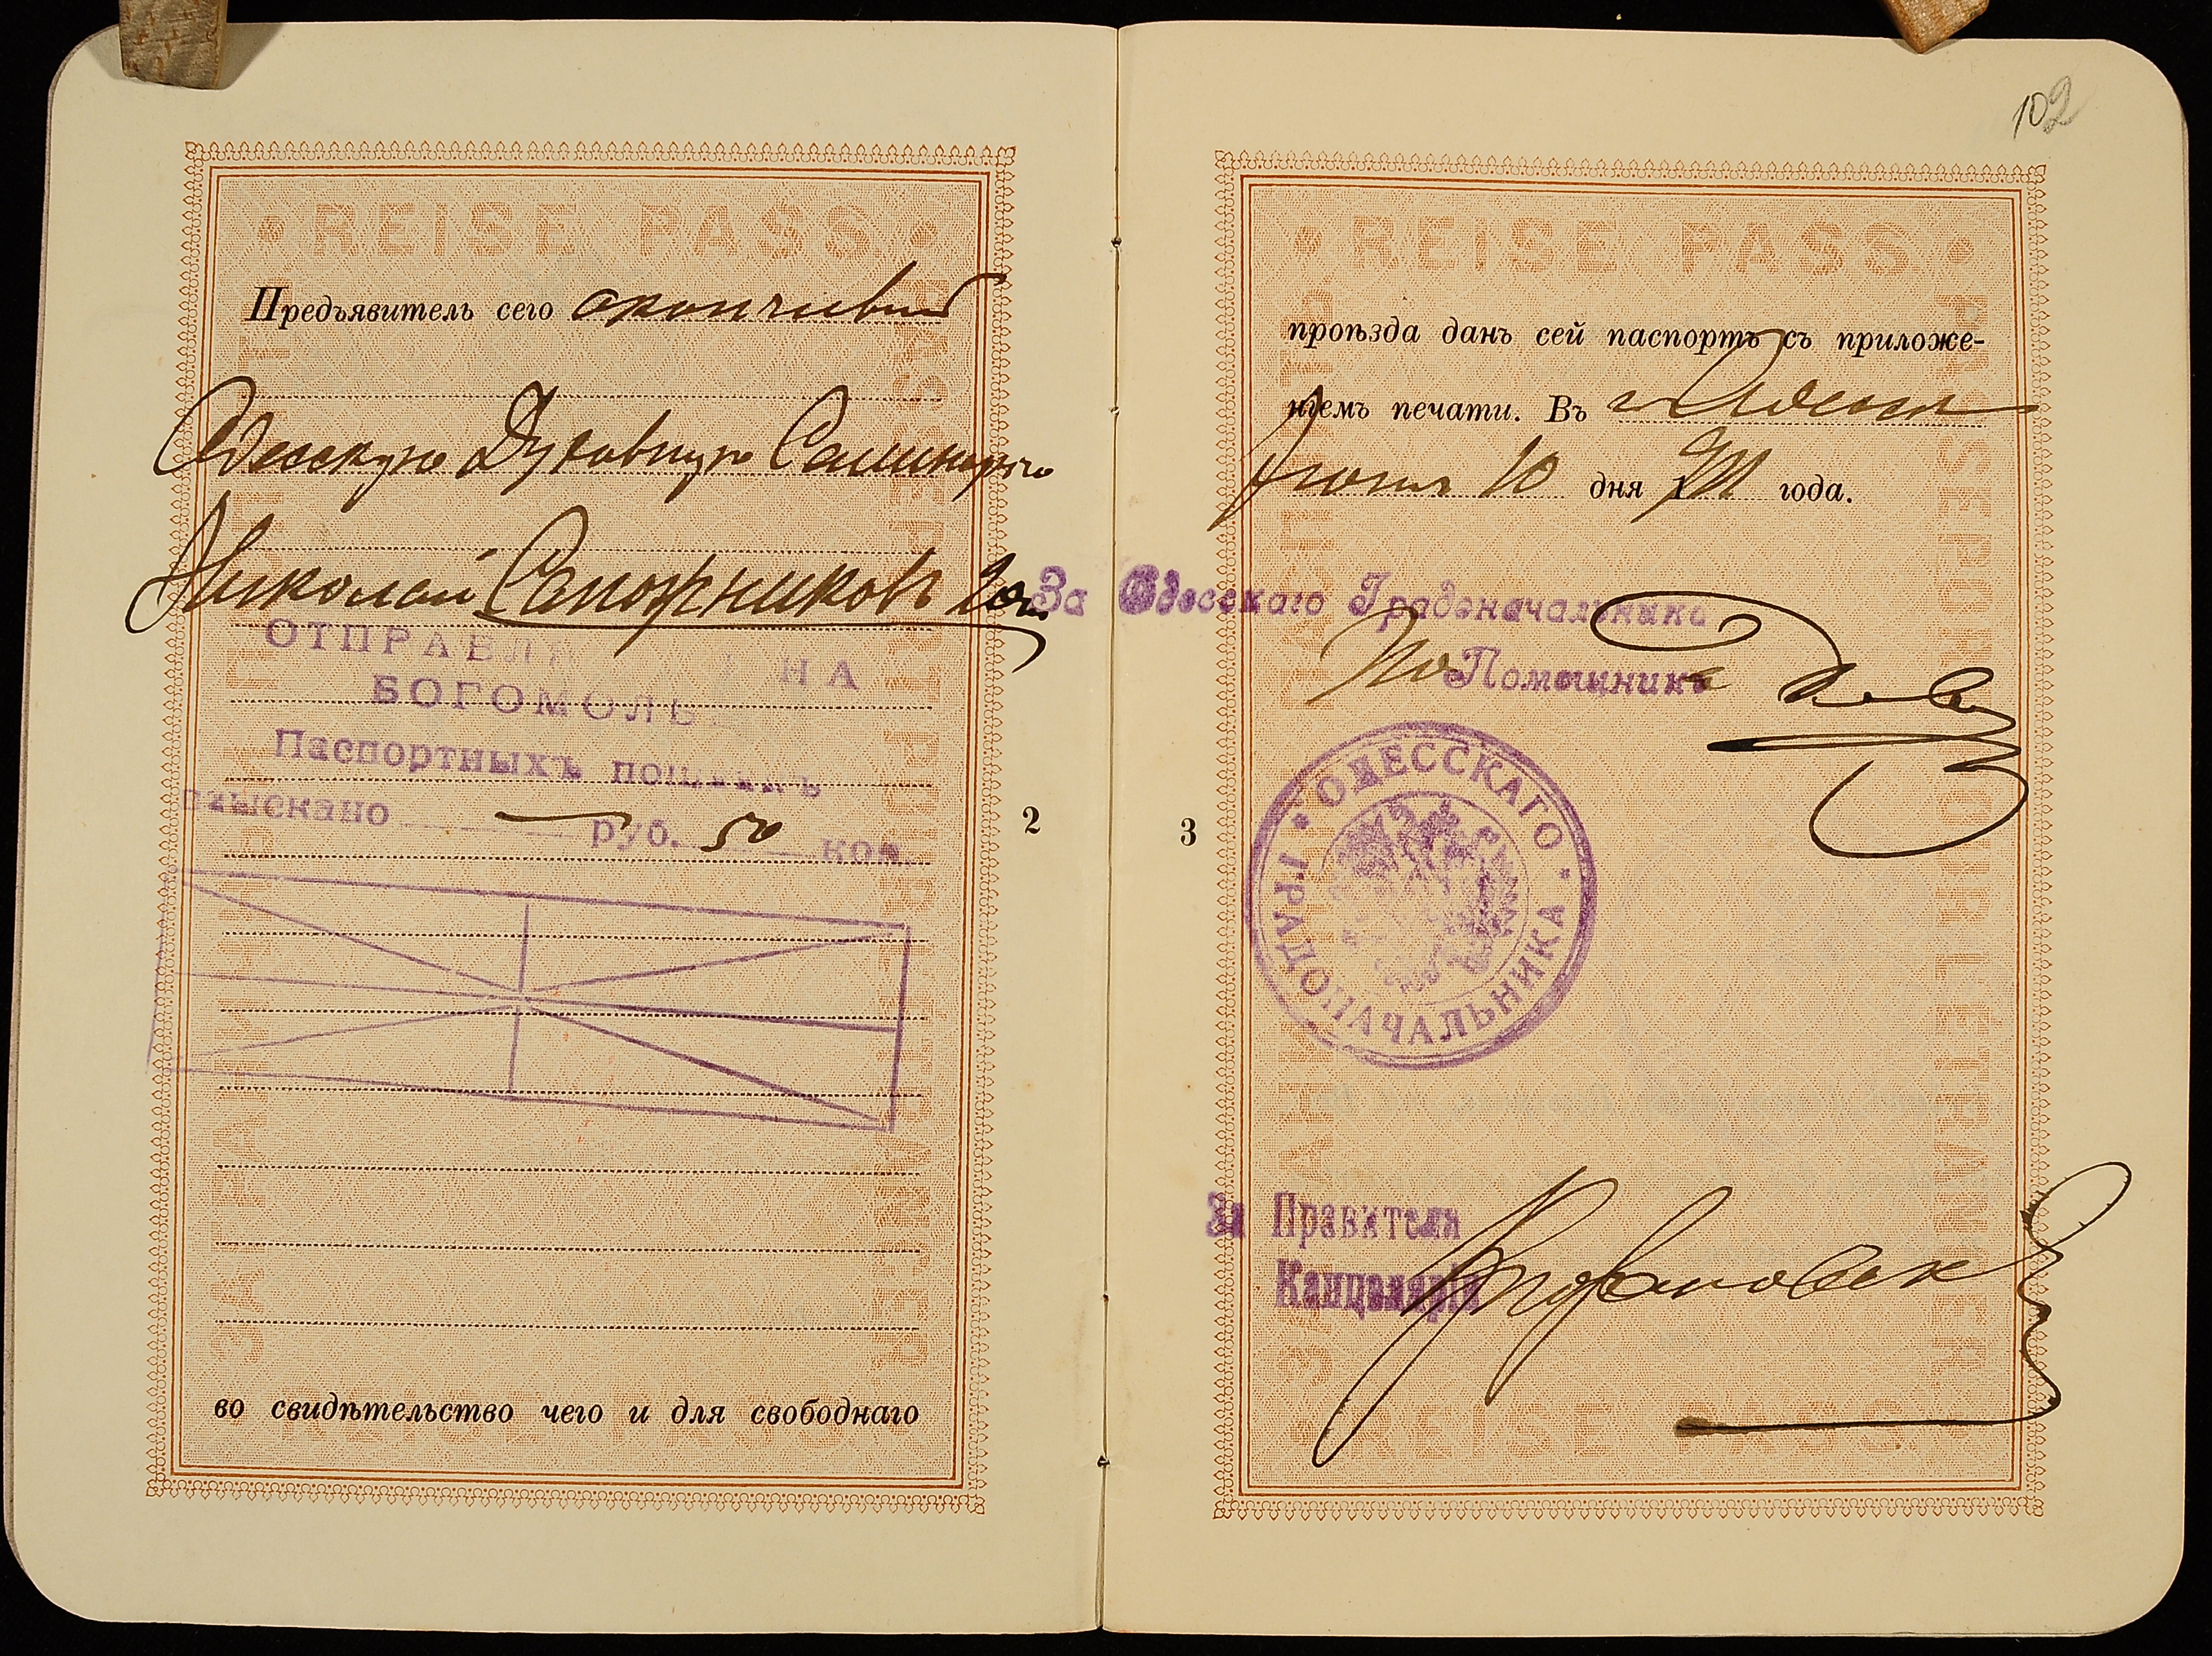 REISE PASS
Предъявитель сего окончивший
Одесскую Духовную Семинарію
Николай Сапожниковъ
ОТПРАВЛ НА
БОГОМОЛЬЕ
Паспортныхъ пошлинъ
взыскано — руб. 50 коп.
во свидѣтельство чего и для свободнаго
REISE PASS
PASSEPORT POUR L'ETRANGER
ЗАГРАНИЧНЫЙ ПАСПОРТЪ
2
102
REISE PASS
проѣзда данъ сей паспортъ съ приложе-
ніемъ печати. Въ г. Одессѣ
Іюня 10 дня 1911 года.
За Одесскаго Градоначальника
Помощникъ
ОДЕССКАГО ГРАДОНАЧАЛЬНИКА
За Правителя
Канцеляріи
REISE PASS
PASSEPORT POUR L'ETRANGER
3